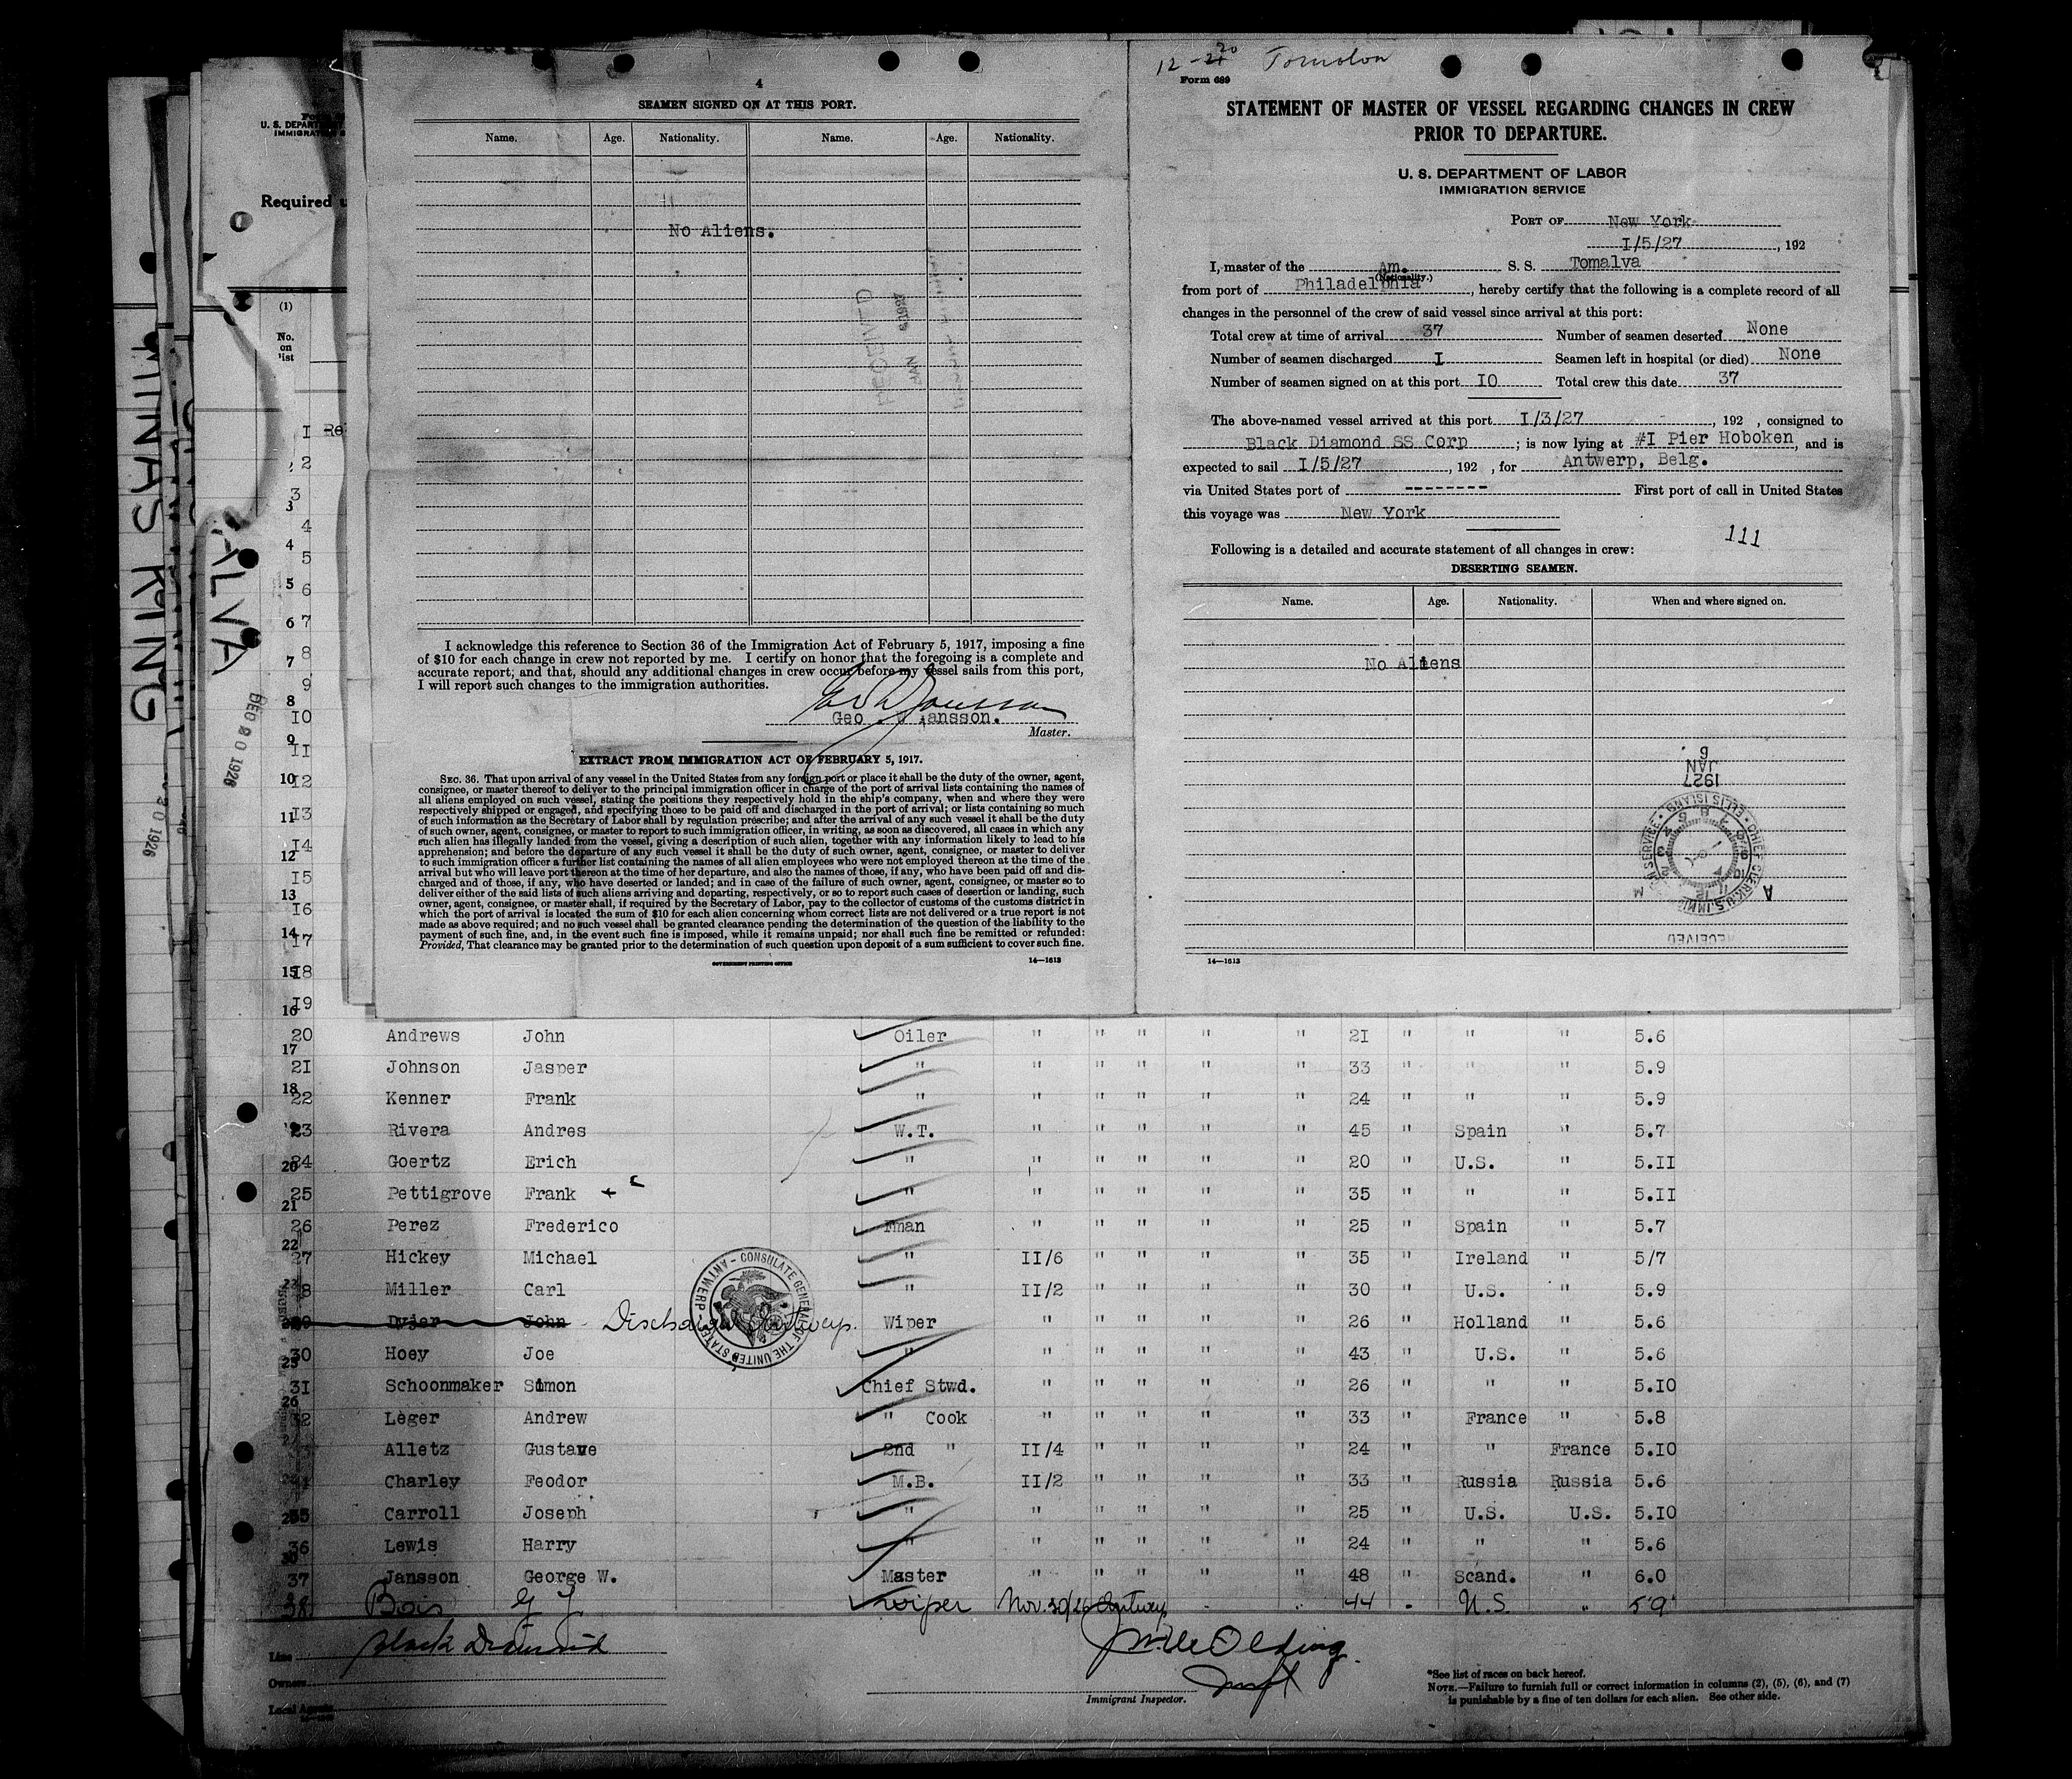 4
SEAMEN SIGNED ON AT THIS PORT.
Name. Age. Nationality. Name. Age. Nationality.
No Aliens.
I acknowledge this reference to Section 36 of the Immigration Act of February 5, 1917, imposing a fine
of $10 for each change in crew not reported by me. I certify on honor that the foregoing is a complete and
accurate report; and that, should any additional changes in crew occur before my vessel sails from this port,
I will report such changes to the immigration authorities.
Geo W Jansson.
Master.
EXTRACT FROM IMMIGRATION ACT OF FEBRUARY 5, 1917.
SEC. 36. That upon arrival of any vessel in the United States from any foreign port or place it shall be the duty of the owner, agent,
consignee, or master thereof to deliver to the principal immigration officer in charge of the port of arrival lists containing the names of
all aliens employed on such vessel, stating the positions they respectively hold in the ship's company, when and where they were
respectively shipped or engaged, and specifying those to be paid off and discharged in the port of arrival; or lists containing so much
of such information as the Secretary of Labor shall by regulation prescribe; and after the arrival of any such vessel it shall be the duty
of such owner, agent, consignee, or master to report to such immigration officer, in writing, as soon as discovered, all cases in which any
such alien has illegally landed from the vessel, giving a description of such alien, together with any information likely to lead to his
apprehension; and before the departure of any such vessel it shall be the duty of such owner, agent, consignee, or master to deliver
to such immigration officer a further list containing the names of all alien employees who were not employed thereon at the time of the
arrival but who will leave port thereon at the time of her departure, and also the names of those, if any, who have been paid off and dis-
charged and of those, if any, who have deserted or landed; and in case of the failure of such owner, agent, consignee, or master so to
deliver either of the said lists of such aliens arriving and departing, respectively, or so to report such cases of desertion or landing, such
owner, agent, consignee, or master shall, if required by the Secretary of Labor, pay to the collector of customs of the customs district in
which the port of arrival is located the sum of $10 for each alien concerning whom correct lists are not delivered or a true report is not
made as above required; and no such vessel shall be granted clearance pending the determination of the question of the liability to the
payment of such fine, and, in the event such fine is imposed, while it remains unpaid; nor shall such fine be remitted or refunded:
Provided, That clearance may be granted prior to the determination of such question upon deposit of a sum sufficient to cover such fine.
GOVERNMENT PRINTING OFFICE 14—1613
Form 689
STATEMENT OF MASTER OF VESSEL REGARDING CHANGES IN CREW
PRIOR TO DEPARTURE.
U. S. DEPARTMENT OF LABOR
IMMIGRATION SERVICE
PORT OF New York
I/5/27, 192
I, master of the Am. S. S. Tomalva
(Nationality.)
from port of Philadelphia, hereby certify that the following is a complete record of all
changes in the personnel of the crew of said vessel since arrival at this port:
Total crew at time of arrival 37 Number of seamen deserted None
Number of seamen discharged I Seamen left in hospital (or died) None
Number of seamen signed on at this port IO Total crew this date 37
The above-named vessel arrived at this port I/3/27, 192 , consigned to
Black Diamond SS Corp ; is now lying at #I Pier Hoboken, and is
expected to sail I/5/27, 192 , for Antwerp, Belg.
via United States port of -------- First port of call in United States
this voyage was New York
111
Following is a detailed and accurate statement of all changes in crew:
DESERTING SEAMEN.
Name. Age. Nationality. When and where signed on.
No Aliens
6 JAN 1927
14—1613
MINAS KING
ALVA
DEC 20 1926
Required
(1)
No. on list
20 Andrews John Oiler " " " " " 2I " " " 5.6
2I Johnson Jasper " " " " " " 33 " " " 5.9
22 Kenner Frank " " " " " " 24 " " " 5.9
23 Rivera Andres W.T. " " " " " 45 " Spain " 5.7
24 Goertz Erich " " " " " " 20 " U.S. " 5.II
25 Pettigrove Frank " " " " " " 35 " " " 5.II
26 Perez Frederico Fman " " " " " 25 " Spain " 5.7
27 Hickey Michael " II/6 " " " " 35 " Ireland " 5/7
28 Miller Carl " II/2 " " " " 30 " U.S. " 5.9
29 Dyjer John Discharged Antwerp. Wiper " " " " " 26 " Holland " 5.6
30 Hoey Joe " " " " " " 43 " U.S. " 5.6
3I Schoonmaker Simon Chief Stwd. " " " " " 26 " " " 5.IO
32 Leger Andrew " Cook " " " " " 33 " France " 5.8
Alletz Gustave 2nd " II/4 " " " " 24 " " France 5.IO
Charley Feodor M.B. II/2 " " " " 33 " Russia Russia 5.6
35 Carroll Joseph " " " " " " 25 " U.S. U.S. 5.IO
36 Lewis Harry " " " " " " 24 " " " 5.6
37 Jansson George W. Master " " " " " 48 " Scand. " 6.0
38 Bois G J Wiper Nov. 30/26 Antwerp 44 U.S. " 5'9"
Line Black Diamond
Owners
Local Agents
Immigrant Inspector.
*See list of races on back hereof.
NOTE.—Failure to furnish full or correct information in columns (2), (5), (6), and (7)
is punishable by a fine of ten dollars for each alien. See other side.